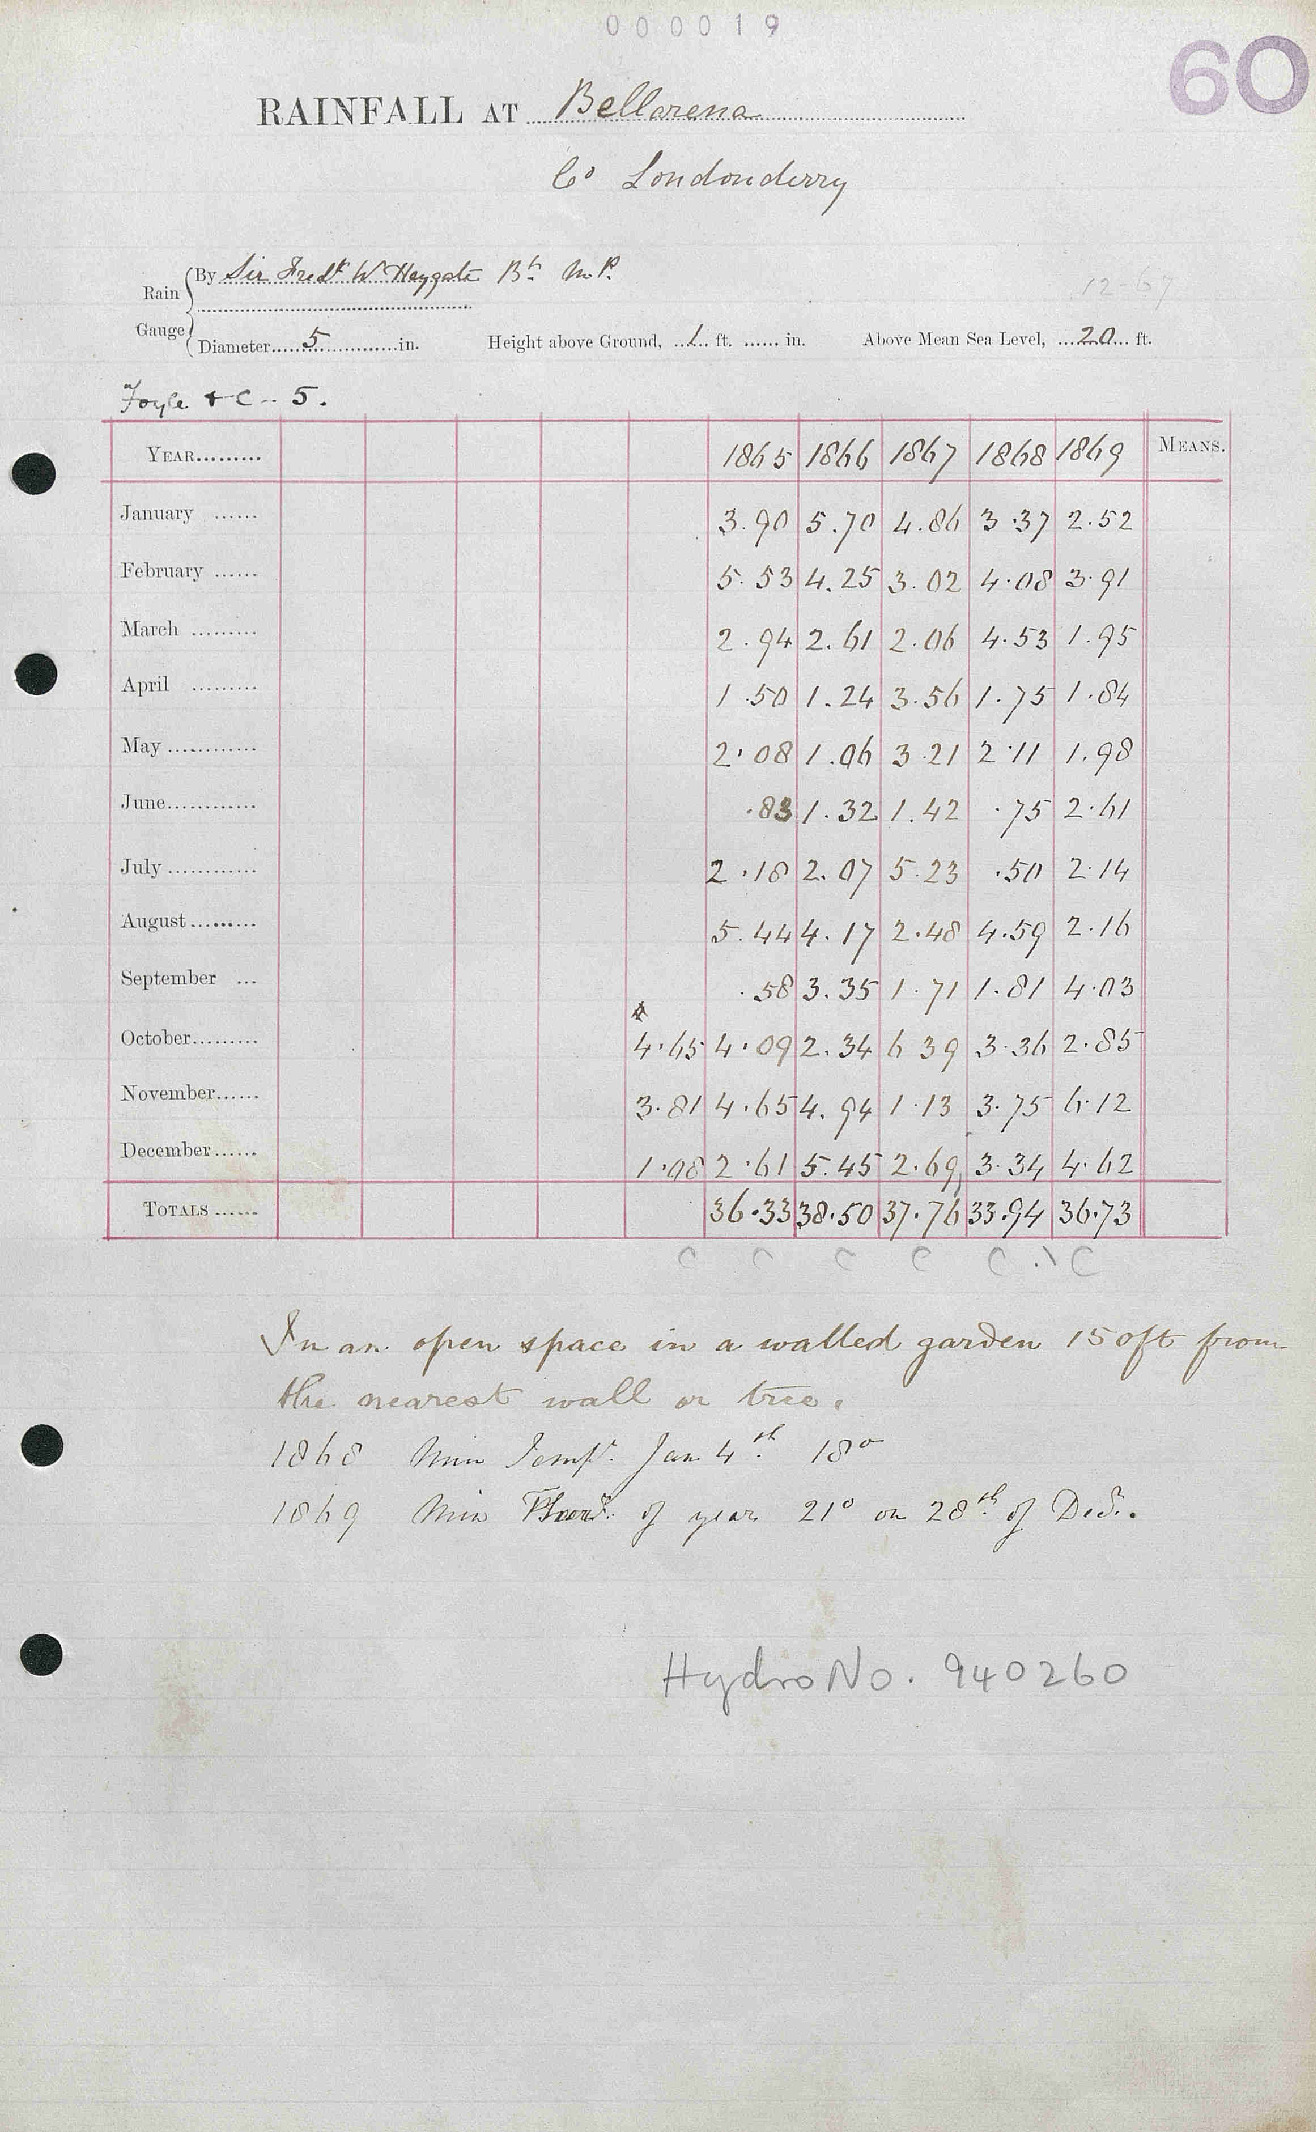 000019
60
RAINFALL AT Bellarena
Co Londonderry
Rain Gauge By Sir Fredk W Heygate Bt. M.P.
12-67
Diameter 5 in. Height above Ground, 1 ft. in. Above Mean Sea Level, 20 ft.
Foyle & C-- 5.
YEAR 1865 1866 1867 1868 1869 MEANS.
January 3.90 5.70 4.86 3.37 2.52
February 5.53 4.25 3.02 4.08 3.91
March 2.94 2.61 2.06 4.53 1.95
April 1.50 1.24 3.56 1.75 1.84
May 2.08 1.06 3.21 2.11 1.98
June .83 1.32 1.42 .75 2.61
July 2.18 2.07 5.23 .50 2.14
August 5.44 4.17 2.48 4.59 2.16
September .58 3.35 1.71 1.81 4.03
October 4.65 4.09 2.34 6 39 3.36 2.85
November 3.81 4.65 4.94 1.13 3.75 6.12
December 1.08 2.61 5.45 2.69 3.34 4.62
TOTALS 36.33 38.50 37.76 33.94 36.73
C C C C C C
In an open space in a walled garden 150ft from
the nearest wall or tree.
1868 Min Tempr. Jan 4th. 18°
1869 Min of year 21° on 28th of Decr.
Hydro No. 940260